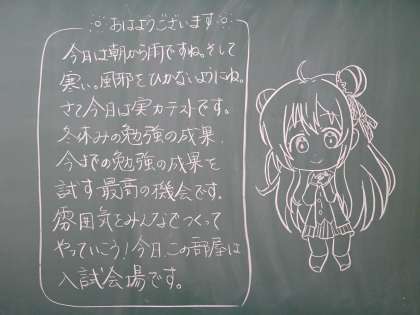 おはようございます
今日は朝から雨ですね。そして
寒い。風邪をひかないようにね。
さて今日は実力テストです。
冬休みの勉強の成果、
今までの勉強の成果を
試す最高の機会です。
雰囲気をみんなでつくって
やっていこう!今日、この部屋は
入試会場です。